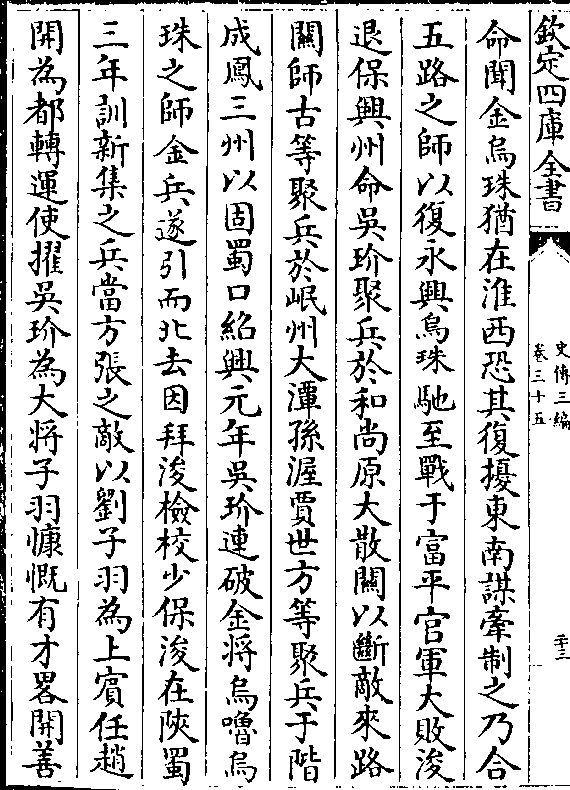 欽定四庫全書
史傳三編
卷三十五
二十三
命聞金烏珠猶在淮西恐其復擾東南謀牽制之乃合
五路之師以復永興烏珠馳至戰于富平官軍大敗浚
退保興州命吳玠聚兵於和尚原大散關以斷敵來路
關師古等聚兵於岷州大潭孫渥賈世方等聚兵于階
成鳳三州以固蜀口紹興元年吳玠連破金將烏嚕烏
珠之師金兵遂引而北去因拜浚檢校少保浚在陜蜀
三年訓新集之兵當方張之敵以劉子羽為上賓任趙
開為都轉運使擢吳玠為大將子羽慷慨有才畧開善